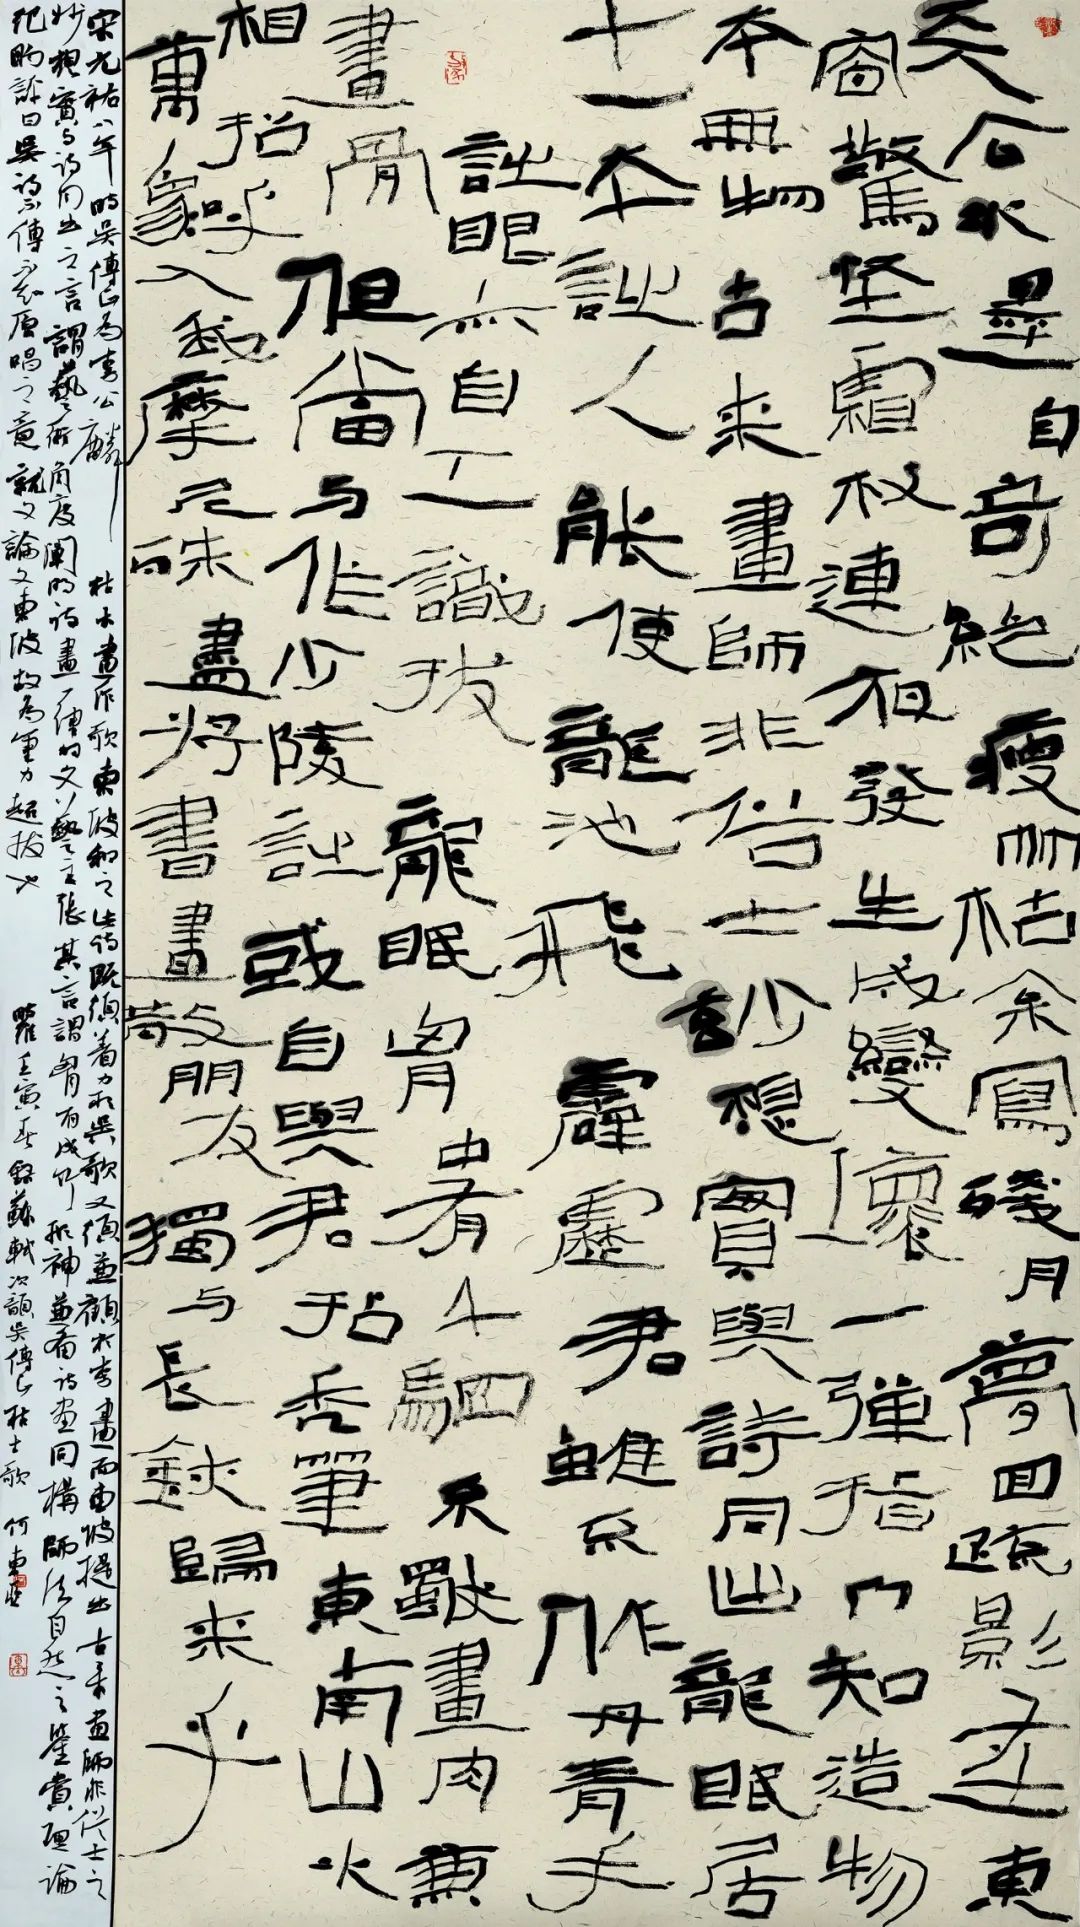 天公水墨自奇絕瘦竹枯松寫殘月夢回疏影在東
窗驚怪霜枝連夜發生成變壞一彈指乃知造物
本無物古來畫師非俗士妙想實與詩同出龍眠居
士本詩人能使龍池飛霹靂君雖不作丹青手
詩眼亦自工識拔龍眠胸中有千駟不獨畫肉兼
畫骨但當与作少陵詩或自與君拈禿筆東南山水
相招呼萬象入我摩尼珠盡將書畫散朋友獨与長鋏歸來乎
宋元祐八年時吳傳正為李公麟枯木畫作歌東坡和之此詩既須着力於吳歌又須兼顧於李畫而東坡提出古來畫師非俗士之
妙想實与詩同出之言謂藝術角度闡明詩畫一律的文藝主張其言謂胸有成竹形神兼備詩画同構師法自然之鑒賞理論
紀昀評曰吳詩不傳不知原唱之意就文論文東坡故為筆力超拔也
壬寅春錄蘇軾次韻吳傳正枯木歌 何東